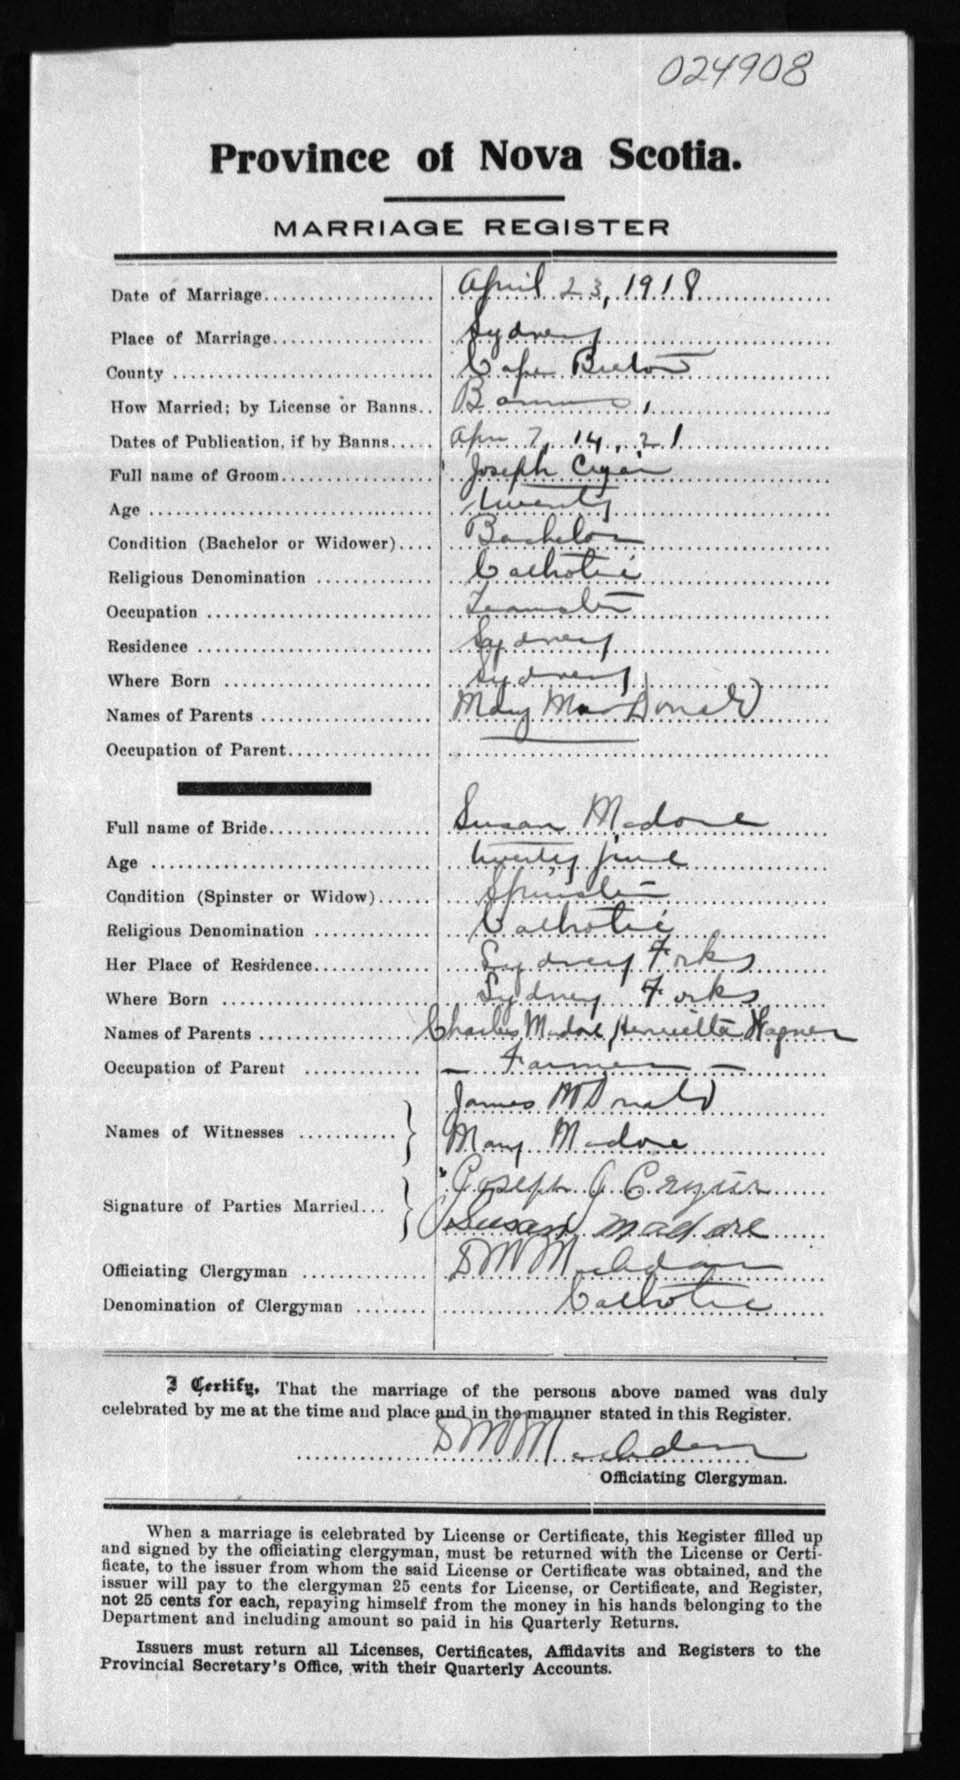 024908
Province of Nova Scotia.
MARRIAGE REGISTER
Date of Marriage.................... April 23, 1918
Place of Marriage.................. Sydney
County ............................. Cape Breton
How Married; by License or Banns.. Banns
Dates of Publication, if by Banns..... Apr 7, 14, 21
Full name of Groom................. Joseph
Age ............................... twenty
Condition (Bachelor or Widower).... Bachelor
Religious Denomination ............. Catholic
Occupation ......................... Teamster
Residence .......................... Sydney
Where Born ........................ Sydney
Names of Parents ................... Mary MacDonald
Occupation of Parent................
Full name of Bride.................. Susan Madore
Age ............................... twenty five
Condition (Spinster or Widow)...... Spinster
Religious Denomination ............. Catholic
Her Place of Residence............. Sydney Forks
Where Born ........................ Sydney Forks
Names of Parents .................. Charles Madore, Henrietta Wagner
Occupation of Parent ............. — Farmer —
Names of Witnesses ........... } James McDonald
Mary Madore
Signature of Parties Married... } Joseph J
Susan Madore
Officiating Clergyman ............. D M
Denomination of Clergyman ........ Catholic
I Certify, That the marriage of the persons above named was duly
celebrated by me at the time and place and in the manner stated in this Register.
D M
Officiating Clergyman.
When a marriage is celebrated by License or Certificate, this Register filled up
and signed by the officiating clergyman, must be returned with the License or Certi-
ficate, to the issuer from whom the said License or Certificate was obtained, and the
issuer will pay to the clergyman 25 cents for License, or Certificate, and Register,
not 25 cents for each, repaying himself from the money in his hands belonging to the
Department and including amount so paid in his Quarterly Returns.
Issuers must return all Licenses, Certificates, Affidavits and Registers to the
Provincial Secretary's Office, with their Quarterly Accounts.